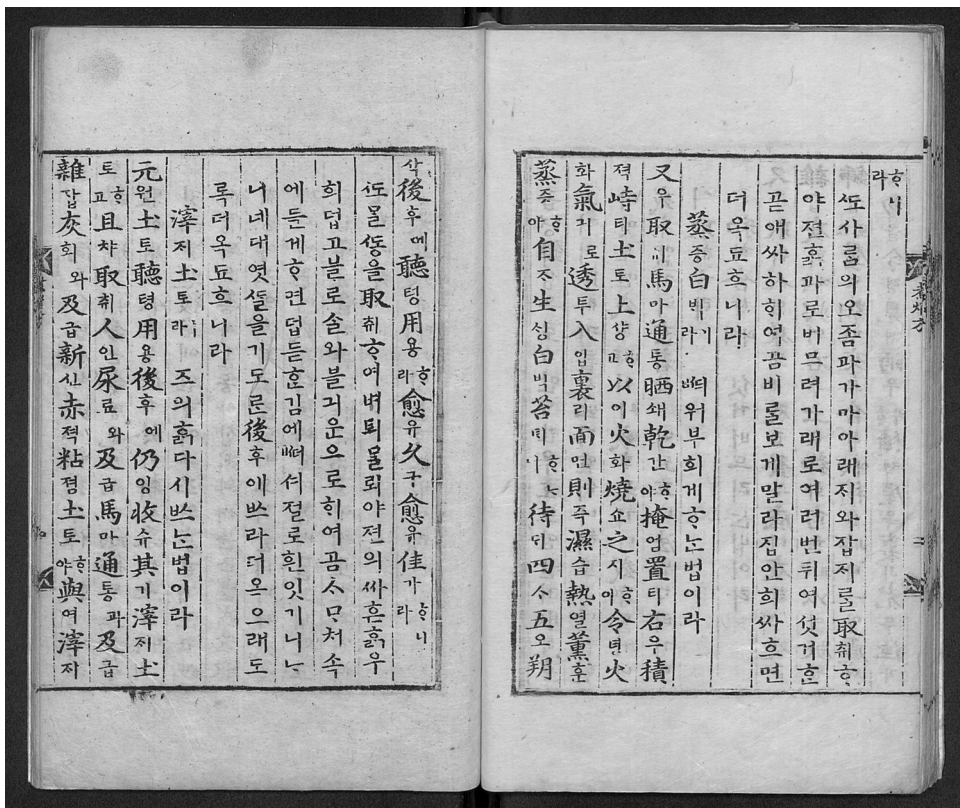 ᄒᆞ니라
ᄯᅩ사ᄅᆞᆷ의오좀과가마아래ᄌᆡ와잡ᄌᆡᄅᆞᆯ取취ᄒᆞ
야젼흙과로버므려가래로여러번뒤여섯거ᄒᆞᆫ
ᄀᆞᆮ애싸하ᄒᆡ여곰비ᄅᆞᆯ보게말라집안ᄒᆡ싸흐면
더옥됴흐니라
蒸증白ᄇᆡᆨ기라 ᄠᅴ워부희게ᄒᆞᄂᆞᆫ법이라
又우取ᄎᆔ馬마通통晒쇄乾간ᄒᆞ야掩엄置티右우積
젹峙티土토上샹ᄒᆞ고以이火화燒쇼之지ᄒᆞ야令령火
화氣긔로透투入입裏리面면則즉濕습熱열薰훈
蒸증ᄒᆞ야自ᄌᆞ生ᄉᆡᆼ白ᄇᆡᆨ苔ᄐᆡᄒᆞᄂᆞ니待ᄃᆡ四ᄉᆞ五오朔
煮焇方
二
삭後후에聽텽用용ᄒᆞ라愈유久구愈유佳가ᄒᆞ니라
ᄯᅩᄆᆞᆯᄯᅩᆼ을取취ᄒᆞ여벼ᄐᆡᄆᆞᆯ뢰야젼의싸흔흙우
희덥고블로ᄉᆞᆯ와블긔운으로ᄒᆡ여곰ᄉᆞᄆᆞᆺ처속
에들게ᄒᆞ면덥듯ᄒᆞᆫ김에ᄠᅥ셔절로흰잇기니ᄂᆞ
니네대엿ᄃᆞᆯ을기ᄃᆞ론後후에ᄡᅳ라더옥으래도
록더옥됴흐니라
滓ᄌᆡ土토라 즈의흙다시ᄡᅳᄂᆞᆫ법이라
元원土토聽텽用용後후에仍잉收슈其기滓ᄌᆡ土
토ᄒᆞ고且챠取취人인尿뇨와及급馬마通통과及급
雜잡灰회와及급新신赤젹粘졈土토ᄒᆞ야與여滓ᄌᆡ